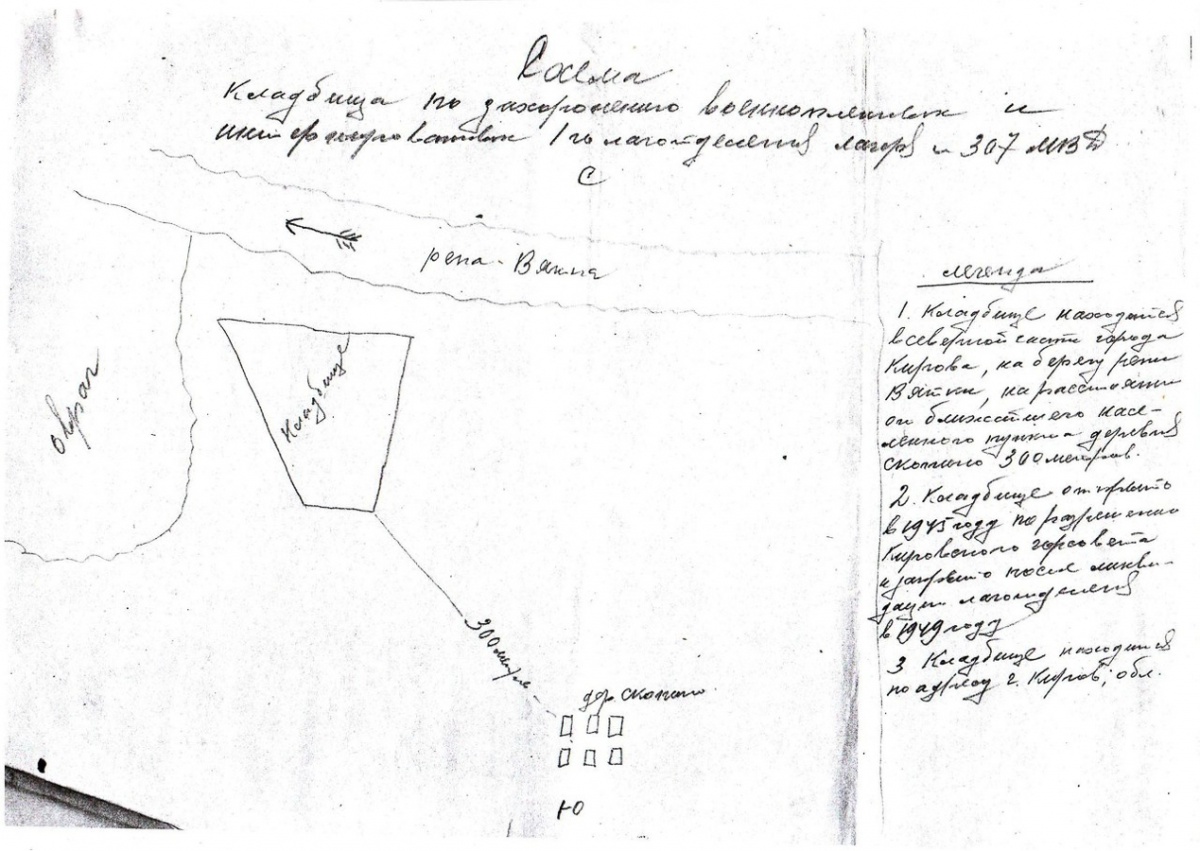 Схема
Кладбища по захоронению военнопленных и
интернированных 1го лаготделения лагеря № 307 МВД
С
река Вятка
овраг
Кладбище
300 метров
дер. Скопино
Ю
легенда
1. Кладбище находится
в северной части города
Кирова, на берегу реки
Вятки, на расстоянии
от ближайшего насе-
ленного пункта деревня
Скопино 300 метров.
2. Кладбище открыто
в 1945 году по разрешению
Кировского горсовета
и закрыто после ликви-
дации лаготделения
в 1949 году
3 Кладбище находится
по адресу г. Киров, обл.